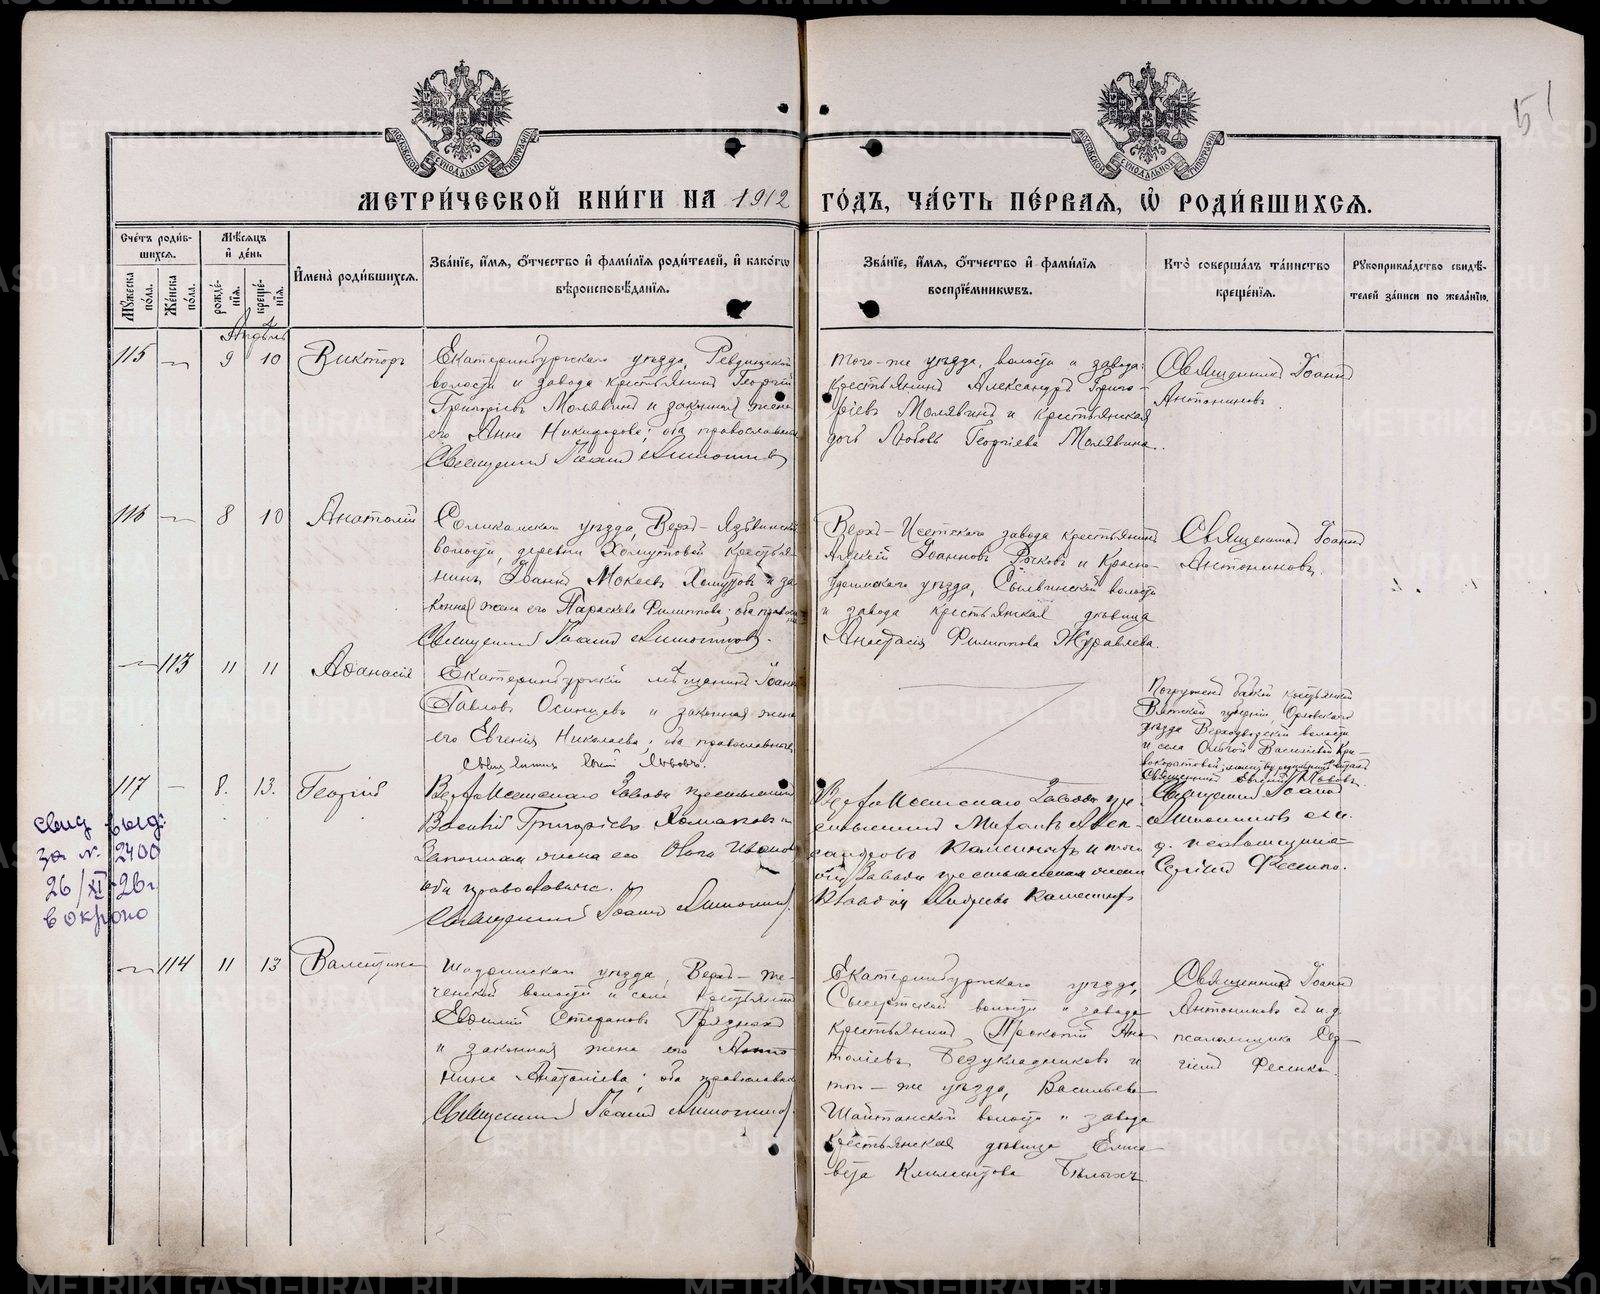 51
МОСКОВСКОЙ СѴНОДАЛЬНОЙ ТИПОГРАФІИ
МОСКОВСКОЙ СѴНОДАЛЬНОЙ ТИПОГРАФІИ
МЕТРИ́ЧЕСКОЙ КНИ́ГИ НА 1912 ГО́ДЪ, ЧА́СТЬ ПЕ́РВАЯ, Ѡ҆ РОДИ́ВШИХСЯ.
Сче́тъ роди́вшихся.
Мꙋ́жеска по́ла.
Же́нска по́ла.
Мѣ́сяцъ и҆ де́нь
рожде́нїя.
креще́нїя.
И҆мена̀ роди́вшихся.
Зва́нїе, и҆́мя, ѻ҆́тчество и҆ фами́лїя роди́телей, и҆ како́гѡ вѣроисповѣ́данїя.
Зва́нїе, и҆́мя, ѻ҆́тчество и҆ фами́лїя воспрїе́мникѡвъ.
Кто̀ соверша́лъ та́инство креще́нїя.
Рꙋкоприкла́дство свидѣ́телей за́писи по жела́нїю.
Апрѣль
115 — 9 10 Викторъ
Екатеринбургскаго уѣзда, Ревдинской
волости и завода крестьянинъ Георгій
Григоріевъ Молявинъ и законная жена
его Анна Никифорова; оба православные
Священникъ Іоаннъ Антониновъ
того-же уѣзда, волости и завода:
крестьянинъ Александръ Григо-
ріевъ Молявинъ и крестьянская
дочь Любовь Георгіева Молявина.
Священникъ Іоаннъ
Антониновъ
116 — 8 10 Анатолій
Соликамскаго уѣзда, Верхъ-Язьвинской
волости, деревни Хомутовой крестья-
нинъ Іоаннъ Мокеевъ Хомутовъ и за-
конная жена его Параскева Филиппова; оба православ
Священникъ Іоаннъ Антониновъ.
Верхъ-Исетскаго завода крестьянинъ
Алексій Іоанновъ Рычковъ и Красно-
уфимскаго уѣзда, Сылвинской волости
и завода крестьянская дѣвица
Анастасія Филиппова Журавлева.
Священникъ Іоаннъ
Антониновъ.
— 113 11 11 Аѳанасія
Екатеринбургскій мѣщанинъ Іоаннъ
Павловъ Осинцевъ и законная жена
его Евгенія Николаева; оба православные
Погружена бабкой крестьянкой
Вятской губерніи Орловскаго
уѣзда Верходворской волости
и села Ольгой Васильевой
Священникъ
117 — 8. 13. Георгій
Верхъ-Исетскаго завода крестьянинъ
Василій Григоріевъ Хомаковъ и
законная жена его Ольга Иванова
оба православные.
Священникъ Іоаннъ Антониновъ.
Верхъ-Исетскаго завода кре-
стьянинъ Михаилъ Алек-
сандровъ и того
же завода крестьянская жена
Клавдія Андреева
Священникъ Іоаннъ
Антониновъ съ и.
д. псаломщика
Сергіемъ Фесенко.
свид выд:
за № 2400
26/XI-26г
— 114 11 13 Валентина
Шадринскаго уѣзда, Верхъ-Те-
ченской волости и села крестьянинъ
Евфимій Стефановъ Грязныхъ
и законная жена его Анто-
нина Анатоліева; оба православные
Священникъ Іоаннъ Антониновъ.
Екатеринбургскаго уѣзда,
Сысертской волости и завода
крестьянинъ Прокопій Ана-
толіевъ Безукладниковъ и
того-же уѣзда, Васильево-
Шайтанской волости и завода
крестьянская дѣвица Елиса-
вета Климентова Бѣлыхъ
Священникъ Іоаннъ
Антониновъ съ и. д.
псаломщика Сер-
гіемъ Фесенко.
METRIKI.GASO-URAL.RU